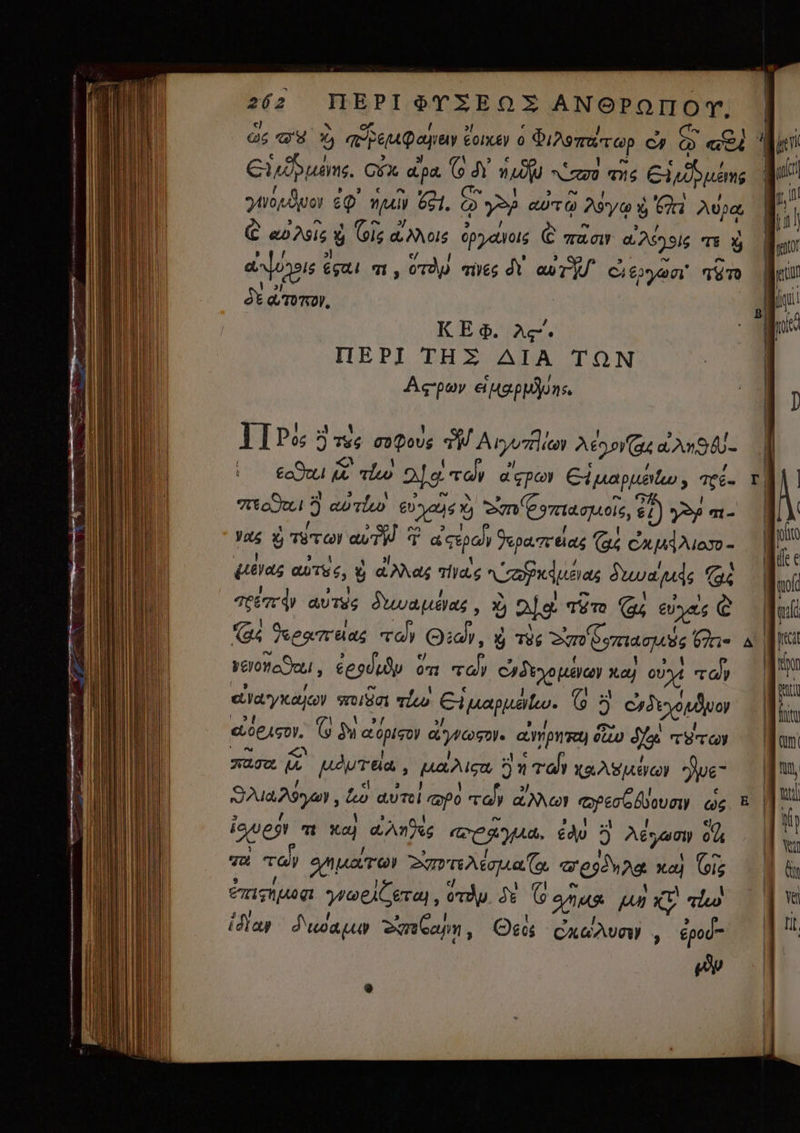 262 ΠΕΡΙ ΦΥΣΕΩΣ ΑΝΘΡΩΠΟΥ.
ὡς που καὶ παρεμφαίνειν ἔοικεν ὁ Φιλοπάτωρ ἐν τῷ περὶ
Εἱμαρμένης. οὐκ ἄρα τὸ δι' ἡμῶν ὑπὸ τῆς Εἱμαρμένης
γινόμενον ἐφ' ἡμῖν ἐστι. τῷ γὰρ αὐτῷ λόγῳ καὶ ἐπὶ λύρᾳ
καὶ αὐλοῖς καὶ τοῖς ἄλλοις ὀργάνοις καὶ πᾶσιν ἀλόγοις τε καὶ
ἀψύχοις ἔσται τι, ὅταν τινες δι' αὐτῶν ἐνεργῶσι· τοῦτο
δὲ ἄτοπον.
ΚΕΦ. λϛ'.
ΠΕΡΙ ΤΗΣ ΔΙΑ ΤΩΝ
Ἄστρων εἱμαρμένης.
ΠΡὸς δὲ τοὺς σοφοὺς τῶν Αἰγυπτίων λέγοντας ἀληθεύ-
εσθαι μὲν τὴν διὰ τῶν ἄστρων Εἱμαρμένην, τρέ-
πεσθαι δὲ αὐτὴν εὐχαῖς καὶ ἀποτροπιασμοῖς, εἶναι γὰρ τι-
νας καὶ τούτων αὐτῶν τῶν ἀστέρων θεραπείας τὰς ἐκμειλισσο-
μένας αὐτοὺς, καὶ ἄλλας τινὰς ὑπερκειμένας δυνάμεις τὰς
τρέπειν αὐτοὺς δυναμένας, καὶ διὰ τοῦτο τὰς εὐχὰς καὶ
τὰς θεραπείας τῶν Θεῶν, καὶ τοὺς ἀποτροπιασμοὺς ἐπι-
νενοῆσθαι, ἐροῦμεν ὅτι τῶν ἐνδεχομένων καὶ οὐχὶ τῶν
ἀναγκαίων ποιοῦσι τὴν Εἱμαρμένην. τὸ δὲ ἐνδεχόμενον
ἀόριστον. τὸ δὴ ἀόριστον ἄγνωστον. ἀνῄρηται οὖν διὰ τούτων
πᾶσα μὲν μαντεία, μάλιστα δὲ ἡ τῶν καλουμένων γενε-
θλιαλόγων, ἣν αὐτοὶ πρὸ τῶν ἄλλων πρεσβεύουσιν ὡς
ἰσχυρόν τι καὶ ἀληθὲς πρᾶγμα. ἐὰν δὲ λέγωσιν ὅτι
τὰ τῶν σχημάτων ἀποτελέσματα πρόδηλα καὶ τοῖς
ἐπιστήμοσι γνωρίζεται, ὅταν δὲ τὸ σχῆμα μὴ κατὰ τὴν
ἰδίαν δύναμιν ἀποβαίνῃ, Θεὸς ἐκώλυσιν, ἐροῦ-
μεν